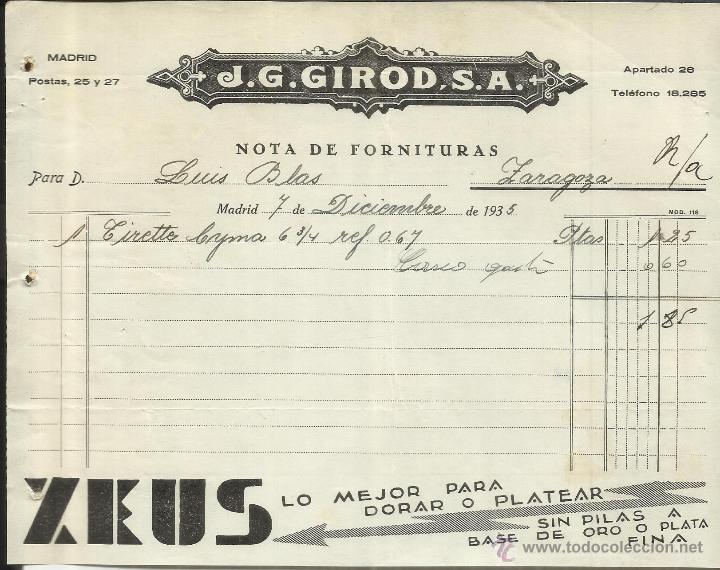 MADRID
Postas, 25 y 27
J. G. GIROD, S. A.
Apartado 26
Teléfono 18.285
NOTA DE FORNITURAS
Para D. Luis Blas Zaragoza
Madrid 7 de Diciembre de 1935
MOD. 118
1 Tirette Cyma 6 3/4 ref 0.67 Ptas 1 25
0 60
1 85
ZEUS
LO MEJOR PARA
DORAR O PLATEAR
SIN PILAS A
BASE DE ORO O PLATA
FINA
© www.todocoleccion.net